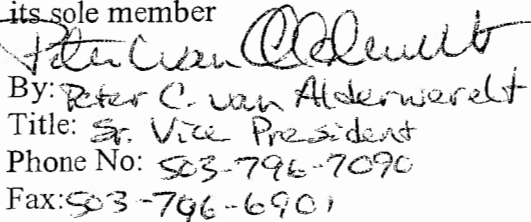 its sole member
Peter C van Alderwerelt
By: Peter C. van Alderwerelt
Title: Sr. Vice President
Phone No: 503-796-7090
Fax:503-796-6901